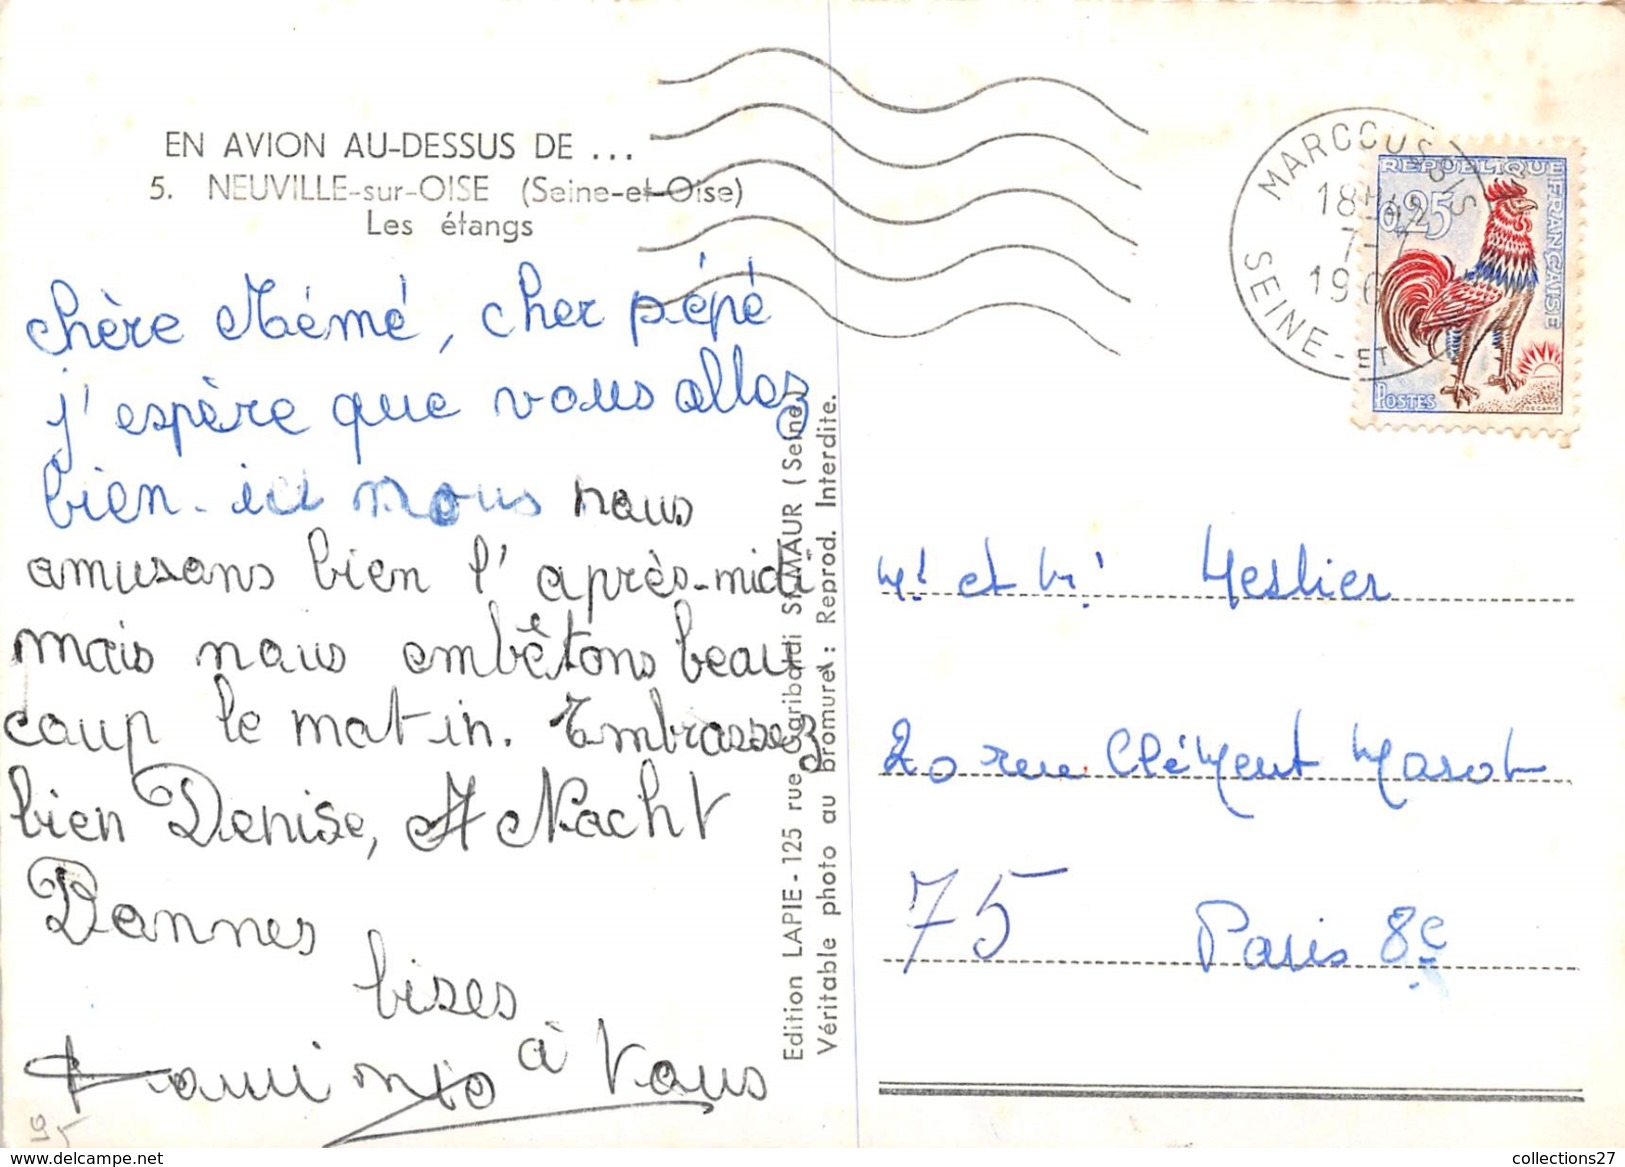 EN AVION AU-DESSUS DE ...
5. NEUVILLE-sur-OISE (Seine-et-Oise)
Les étangs
chère Mémé, cher pépé
j'espère que vous allez
bien. ici nous nous
amusons bien l'après-midi
mais nous embêtons beau
coup le matin. Embrassez
bien Denise,
Dannes
bises
à Vous
Edition LAPIE - 125 rue Garibaldi St-MAUR (Seine)
Véritable photo au bromure : Reprod. Interdite.
MARCOUSSIS
18H
7-7
196
SEINE-ET-
REPUBLIQUE FRANÇAISE
0,25
POSTES
DECARIS
Mr et Mme Meslier
20 rue Clément Marot
75 Paris 8e
collections27
www.delcampe.net